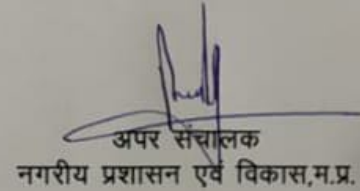 अपर संचालक
नगरीय प्रशासन एवं विकास,म.प्र.